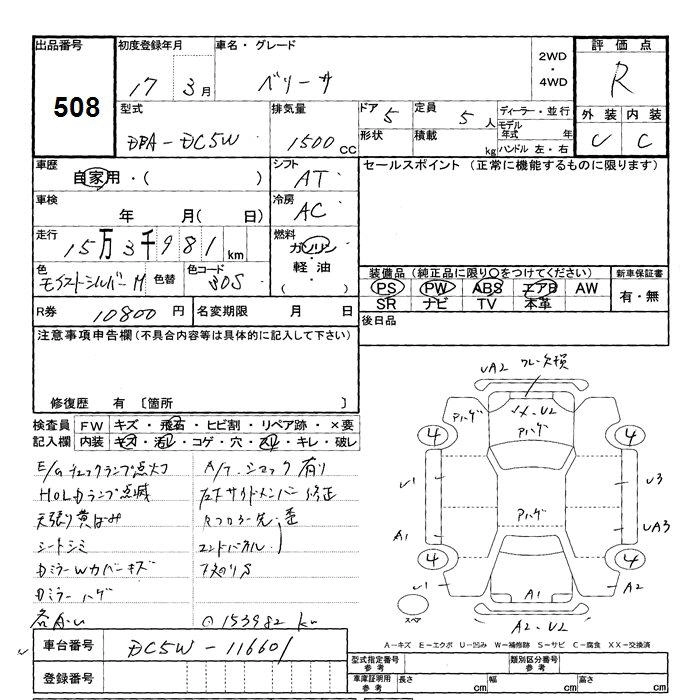 出品番号 初度登録年月 車名・グレード 評価点
508
17 3月 ベリーサ 2WD・4WD R
型式 排気量 ドア 5 定員 5人 ディーラー・並行 外装 内装
モデル年式 年
DBA-DC5W 1500cc 形状 積載 kg ハンドル 左・右 C
車歴 シフト セールスポイント (正常に機能するものに限ります)
自家用・( ) AT
車検 冷房
年 月( 日) AC
走行 燃料
15万3千981km ガソリン・軽油・( )
色 色替 色コード 装備品 (純正品に限り○をつけてください) 新車保証書
M 30S PS PW ABS エアB AW 有・無
SR ナビ TV 本革
R券 10800円 名変期限 月 日 後日品
注意事項申告欄(不具合内容等は具体的に記入して下さい)
修復歴 有 〔箇所 〕
UA2 欠損
検査員記入欄 FW キズ・飛石・ヒビ割・リペア跡・×要
内装 キズ・汚レ・コゲ・穴・スレ・キレ・破レ
Aハゲ Aハゲ
4 4
E/Gチェックランプ点灯 A/T 有り
HOLDランプ点滅 左Fサイドメンバー修正
天張り黄ばみ
U1 U3
Aハゲ
シートシミ エンドパネル
A1 UA3
DミラーWカバーキズ
4 4
Dミラーハゲ
U1 A1 A2
⊙153982km
スペア
A2.U2
車台番号 DC5W-116601
A-キズ E-エクボ U-凹み W-補修跡 S-サビ C-腐食 XX-交換済
型式指定番号 参考 類別区分番号 参考
登録番号
車庫証明用 参考 長さ cm 幅 cm 高さ cm